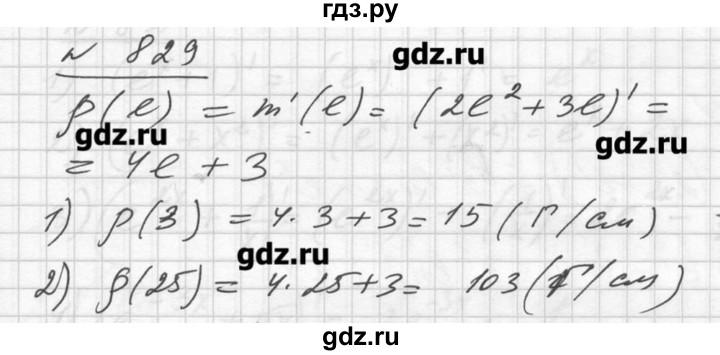 гдз.ру
№ 829
gdz.ru
ρ(l) = m'(l) = (2l² + 3l)' =
gdz.ru
gdz.ru
= 4l + 3
1) ρ(3) = 4·3+3 = 15 (Г/см)
gdz.ru
2) ρ(25) = 4·25+3 = 103 (Г/см)
gdz.ru